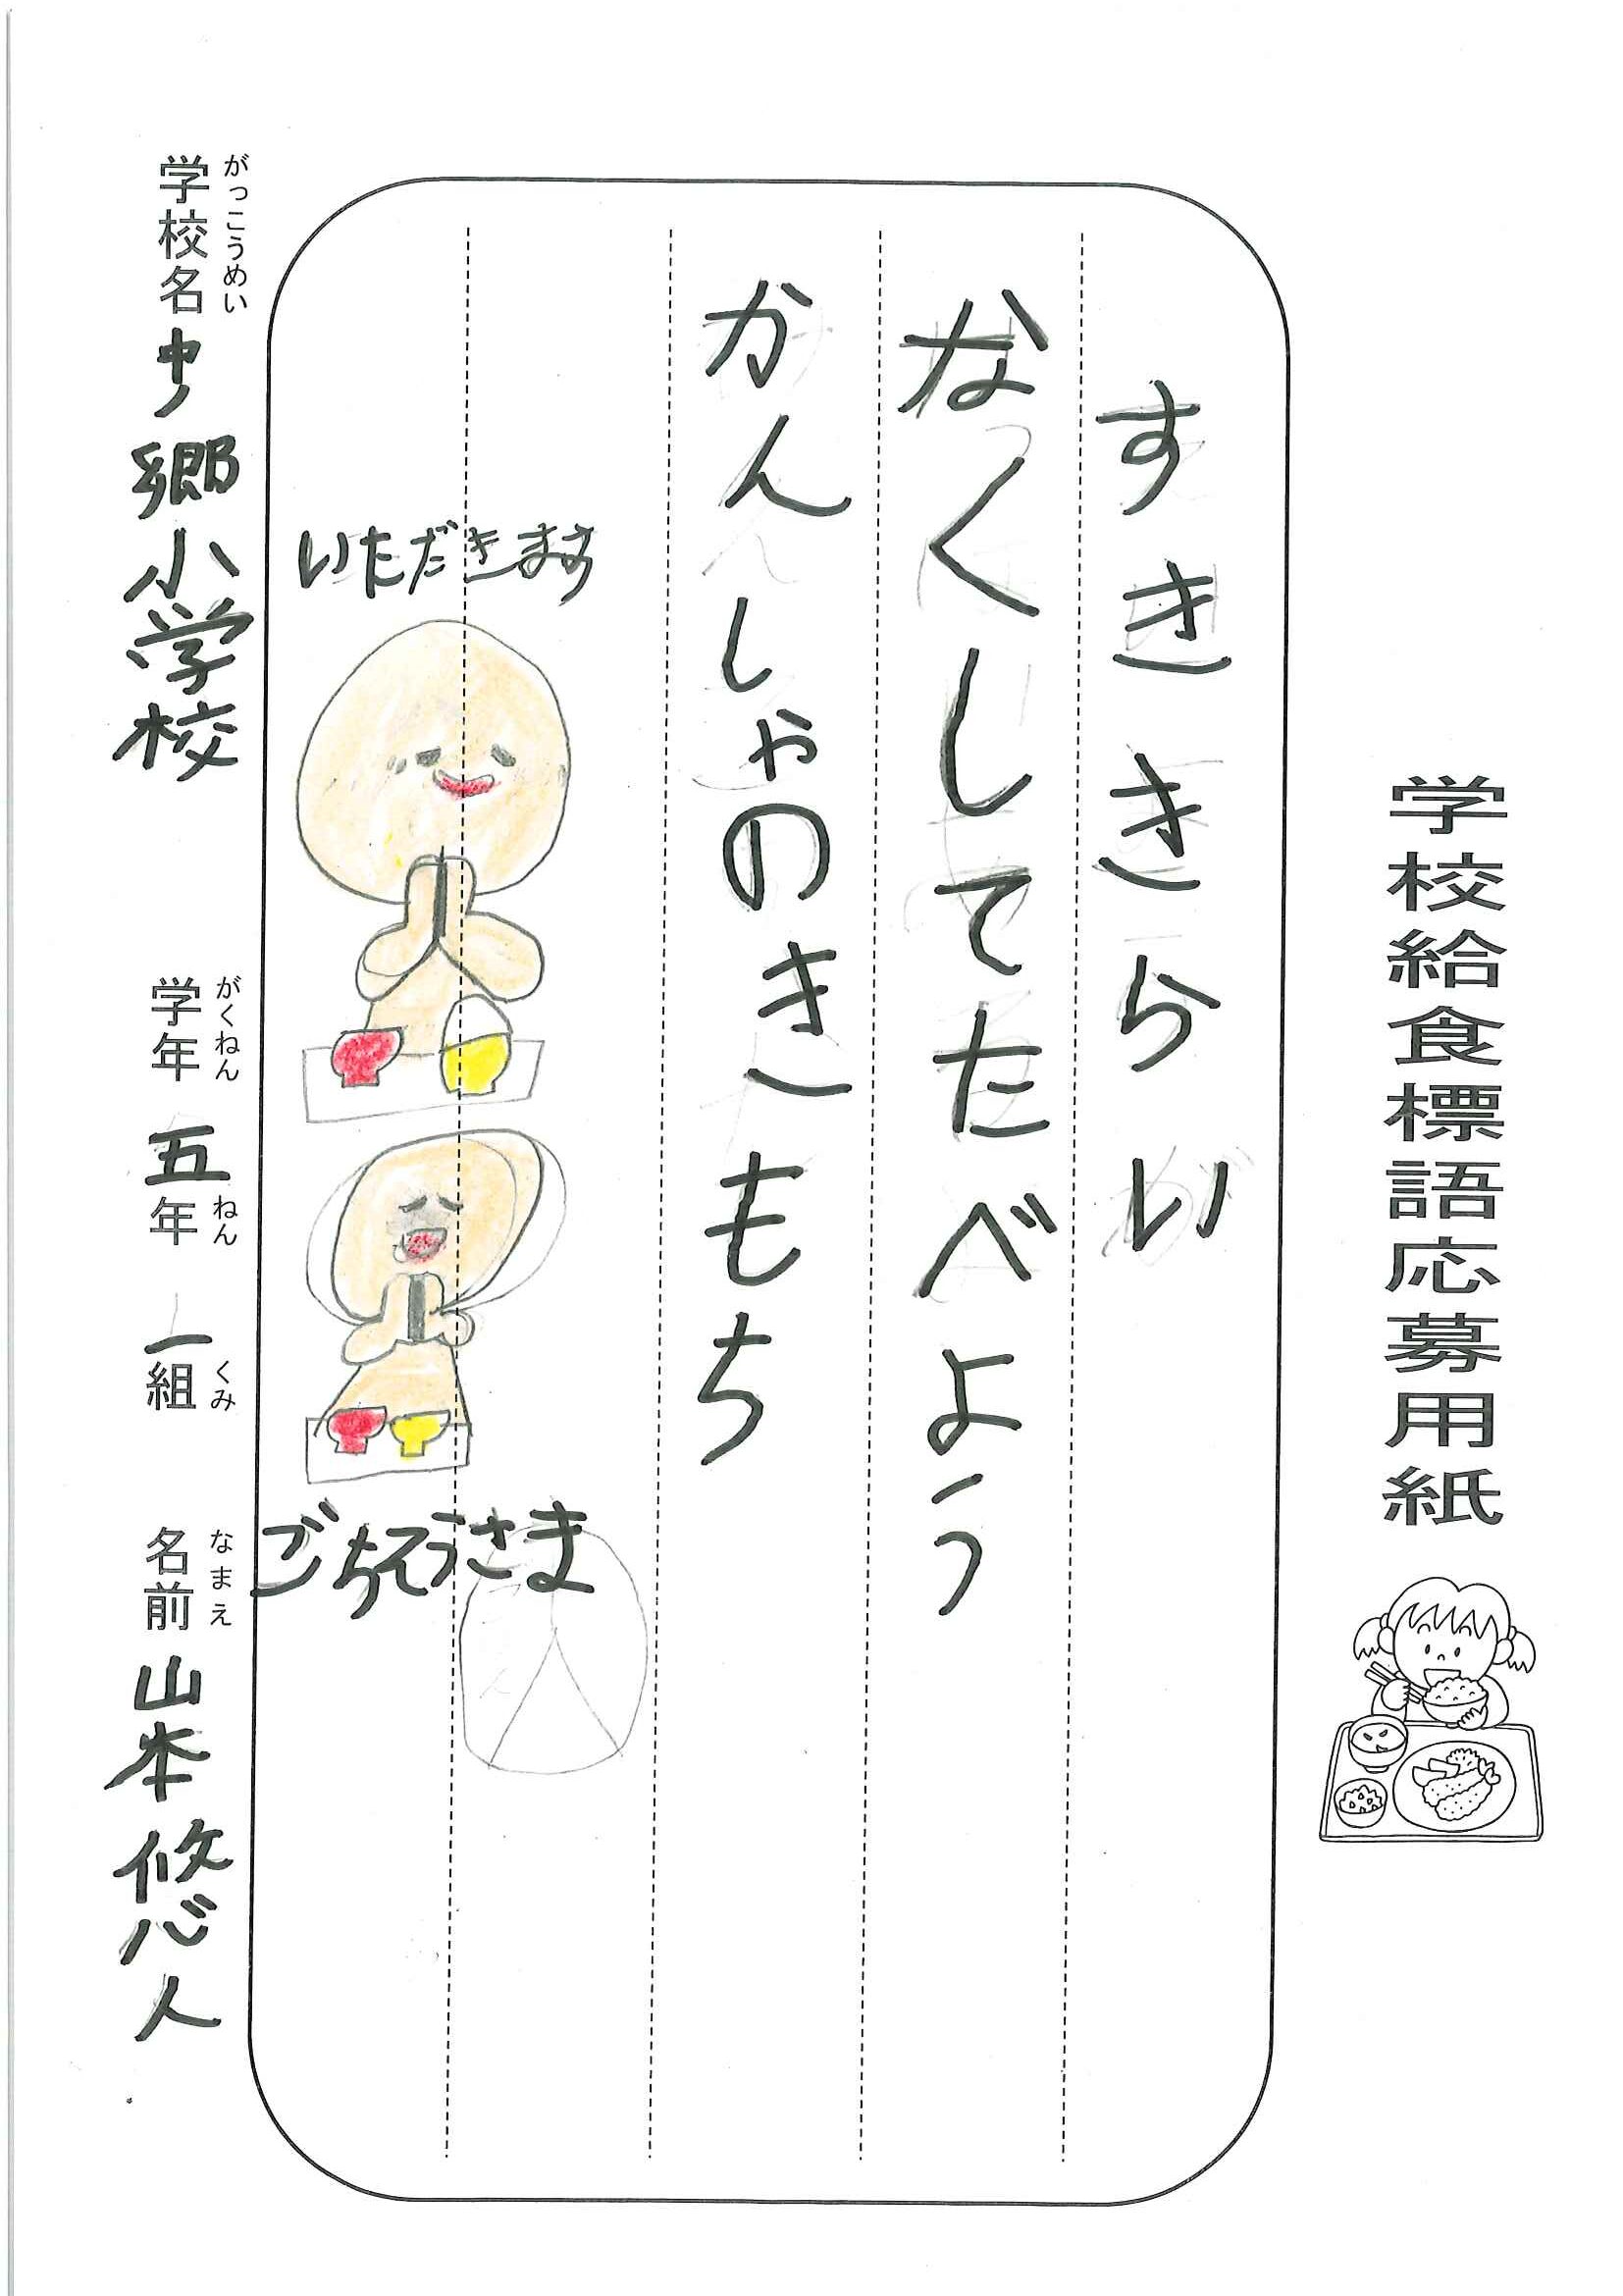 学校給食標語応募用紙
すききらい
なくしてたべよう
かんしゃのきもち
いただきます
ごちそうさま
がっこうめい
学校名 中ノ郷小学校
がくねん ねん くみ
学年 五年 一組
なまえ
名前 山本悠人